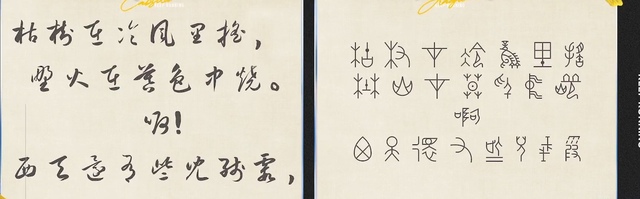 枯树在冷风里摇,
野火在暮色中烧。
啊!
西天还有些儿残霞,
枯树在冷风里摇
野火在暮色中烧
啊
西天还有些儿残霞